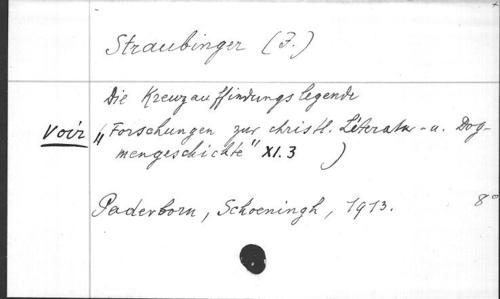 Straubinger (J.)
Die Kreuzauffindungslegende
Voir („Forschungen zur christl. Literatur- u. Dog-
mengeschichte" XI. 3 )
Paderborn, Schoeningh, 1913. 8°